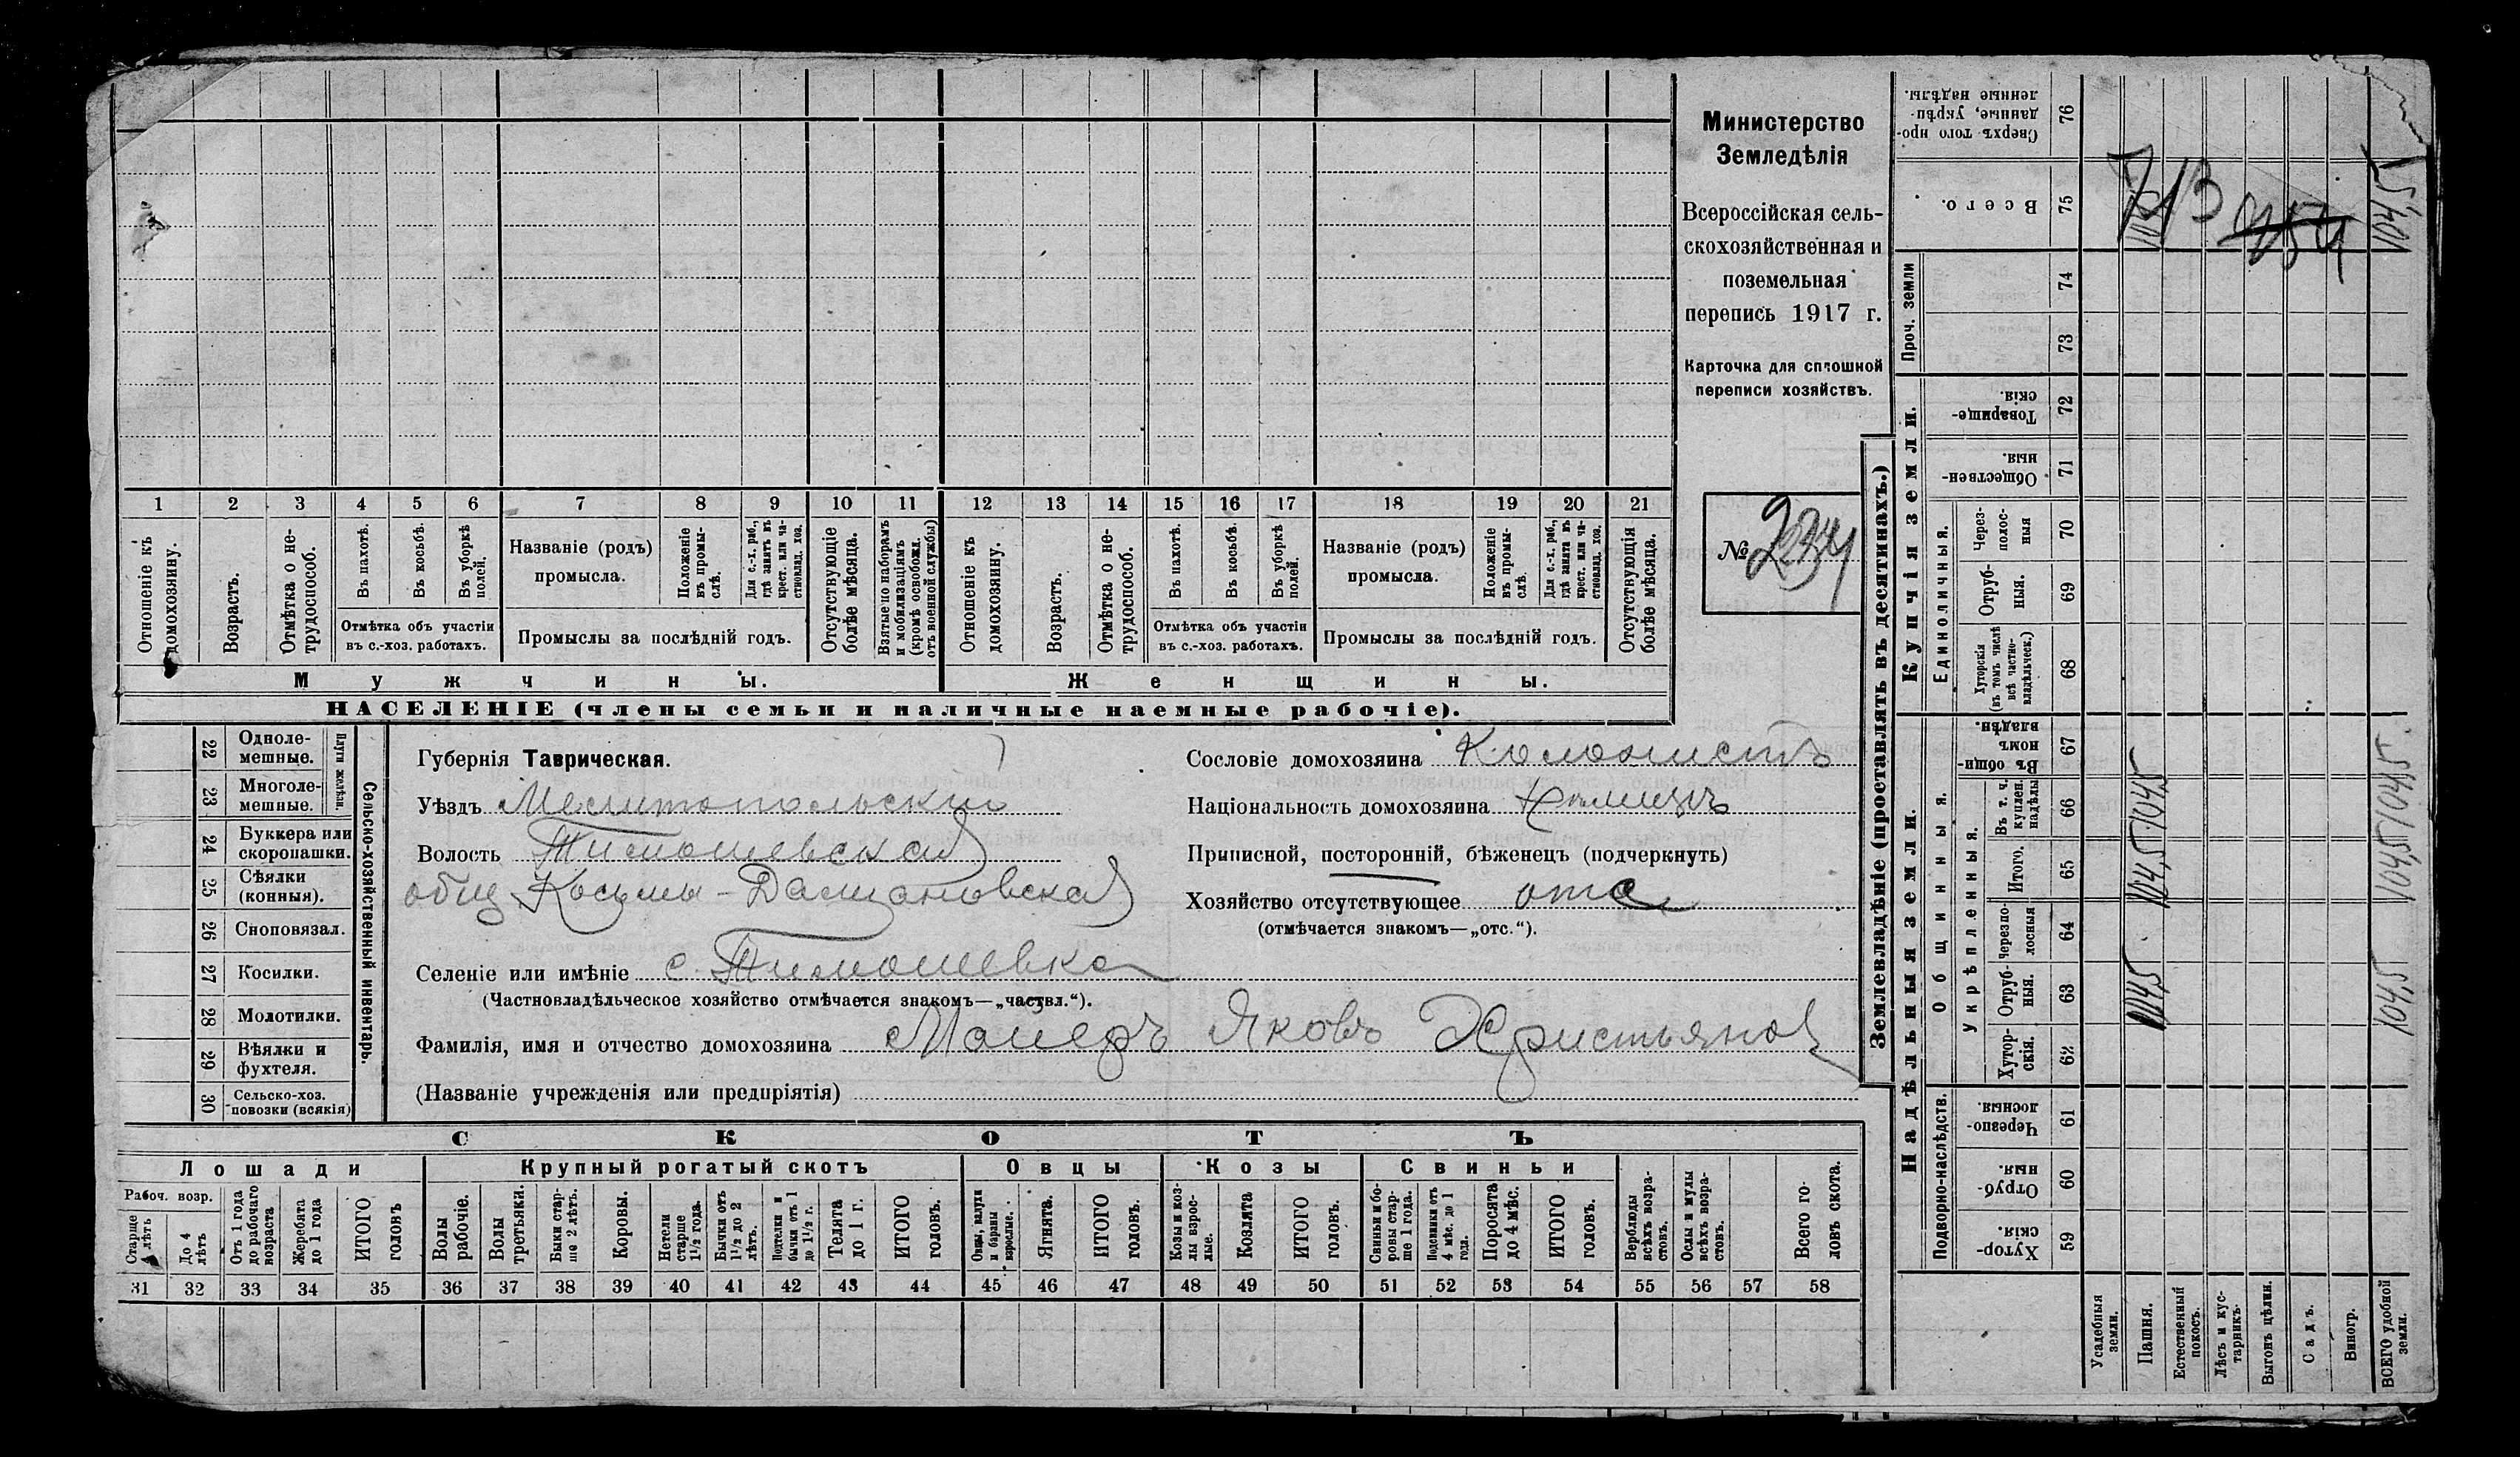 1 2 3 4 5 6 7 8 9 10 11 12 13 14 15 16 17 18 19 20 21
Отношеніе къ домохозяину.
Возрастъ.
Отмѣтка о не-
трудоспособ.
Въ пахотѣ.
Въ косьбѣ.
Въ уборкѣ
полей.
Отмѣтка объ участіи
въ с.-хоз. работахъ.
Названіе (родъ)
промысла.
Положеніе
въ промы-
слѣ.
Для с.-х. раб.,
гдѣ занятъ въ
крест. или ча-
стновлад. хоз.
Промыслы за послѣдній годъ.
Отсутствующіе
болѣе мѣсяца.
Взятые по наборамъ
и мобилизаціямъ
(кромѣ освобожд.
отъ военной службы)
Отношеніе къ
домохозяину.
Возрастъ.
Отмѣтка о не-
трудоспособ.
Въ пахотѣ.
Въ косьбѣ.
Въ уборкѣ
полей.
Отмѣтка объ участіи
въ с.-хоз. работахъ.
Названіе (родъ)
промысла.
Положеніе
въ промы-
слѣ.
Для с.-х. раб.,
гдѣ занята въ
крест. или ча-
стновлад. хоз.
Промыслы за послѣдній годъ.
Отсутствующія
болѣе мѣсяца.
Мужчины.
Женщины.
НАСЕЛЕНІЕ (члены семьи и наличные наемные рабочіе).
Министерство
Земледѣлія
Всероссійская сель-
скохозяйственная и
поземельная
перепись 1917 г.
Карточка для сплошной
переписи хозяйствъ.
№ 2234
22 Одноле-
мешные.
23 Многоле-
мешные.
Плуги желѣзн.
24 Буккера или
скоропашки.
25 Сѣялки
(конныя).
26 Сноповязал.
27 Косилки.
28 Молотилки.
29 Вѣялки и
фухтеля.
30 Сельско-хоз.
повозки (всякія)
Сельско-хозяйственный инвентарь.
Губернія Таврическая.
Уѣздъ Мелитопольскій
Волость Тимошевская
общ Косьмы-Даміановская
Селеніе или имѣніе с. Тимошевка
(Частновладѣльческое хозяйство отмѣчается знакомъ—„частвл.“).
Фамилія, имя и отчество домохозяина Майеръ Яковъ Христьянов
(Названіе учрежденія или предпріятія)
Сословіе домохозяина Колонистъ
Національность домохозяина Нѣмецъ
Приписной, посторонній, бѣженецъ (подчеркнуть)
Хозяйство отсутствующее отс
(отмѣчается знакомъ—„отс.“).
СКОТЪ
Лошади
Крупный рогатый скотъ
Овцы
Козы
Свиньи
Рабоч. возр.
Старше
4 лѣтъ
До 4
лѣтъ
Отъ 1 года
до рабочаго
возраста
Жеребята
до 1 года
ИТОГО
головъ
Волы
рабочіе.
Волы
третьяки.
Быки стар-
ше 2 лѣтъ.
Коровы.
Нетели
старше
1½ года.
Бычки отъ
1½ до 2
лѣтъ.
Подтелки и
бычки отъ 1
до 1½ г.
Телята
до 1 г.
ИТОГО
головъ.
Овцы, валухи
и бараны
взрослые.
Ягнята.
ИТОГО
головъ.
Козы и коз-
лы взрос-
лые.
Козлята
ИТОГО
головъ.
Свиньи и бо-
ровы стар-
ше 1 года.
Подсвинки отъ
4 мѣс. до 1
года.
Поросята
до 4 мѣс.
ИТОГО
головъ.
Верблюды
всѣхъ возра-
стовъ.
Ослы и мулы
всѣхъ возра-
стовъ.
Всего го-
ловъ скота.
31 32 33 34 35 36 37 38 39 40 41 42 43 44 45 46 47 48 49 50 51 52 53 54 55 56 57 58
Землевладѣніе (проставлять въ десятинахъ.)
Сверхъ того про-
данные, укрѣп-
ленные надѣлы.
76
Всего.
75
713
104,5
104,5
Проч. земли
74
73
Купчія земли.
Товарище-
скія.
72
Обществен-
ныя.
71
Единоличныя.
Через-
полос-
ныя
70
Отруб-
ныя.
69
Хуторскія
(въ томъ числѣ
всѣ частно-
владѣльческ.)
68
Надѣльныя земли.
Общинныя.
Въ общи-
номъ
владѣн.
67
Укрѣпленныя.
Въ т. ч.
куплен.
надѣлы
66
104,5
104,5
Итого.
65
104,5
104,5
Черезпо-
лосныя
64
Отруб-
ныя.
63
104,5
104,5
Хутор-
скія.
62
Подворно-наслѣдств.
Черезпо-
лосныя.
61
Отруб-
ныя.
60
Хутор-
скія
59
Усадебныя
земли.
Пашня.
Естественный
покосъ.
Лѣсъ и кус-
тарникъ.
Выгонъ цѣлин.
Садъ.
Виногр.
ВСЕГО удобной
земли.